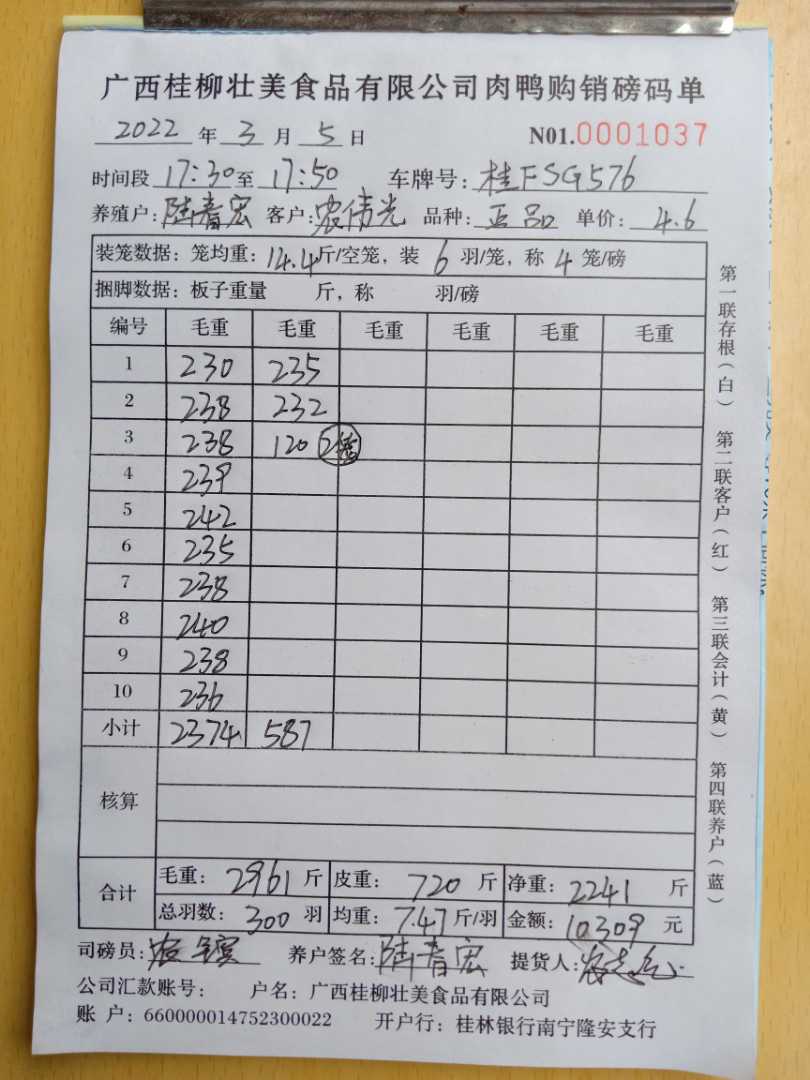 广西桂柳壮美食品有限公司肉鸭购销磅码单
2022 年 3 月 5 日 N01.0001037
时间段 17:30 至 17:50 车牌号: 桂FSG576
养殖户: 陆春宏 客户: 农伟光 品种: 正品 单价: 4.6
装笼数据: 笼均重: 14.4 斤/空笼, 装 6 羽/笼, 称 4 笼/磅
捆脚数据: 板子重量 斤, 称 羽/磅
编号 毛重 毛重 毛重 毛重 毛重 毛重
1 230 235
2 238 232
3 238 120 2笼
4 239
5 242
6 235
7 238
8 240
9 238
10 236
小计 2374 587
核算
合计 毛重: 2961 斤 皮重: 720 斤 净重: 2241 斤
总羽数: 300 羽 均重: 7.47 斤/羽 金额: 10309 元
司磅员: 养户签名: 陆春宏 提货人:
公司汇款账号: 户名: 广西桂柳壮美食品有限公司
账 户: 660000014752300022 开户行: 桂林银行南宁隆安支行
第一联存根(白) 第二联客户(红) 第三联会计(黄) 第四联养户(蓝)